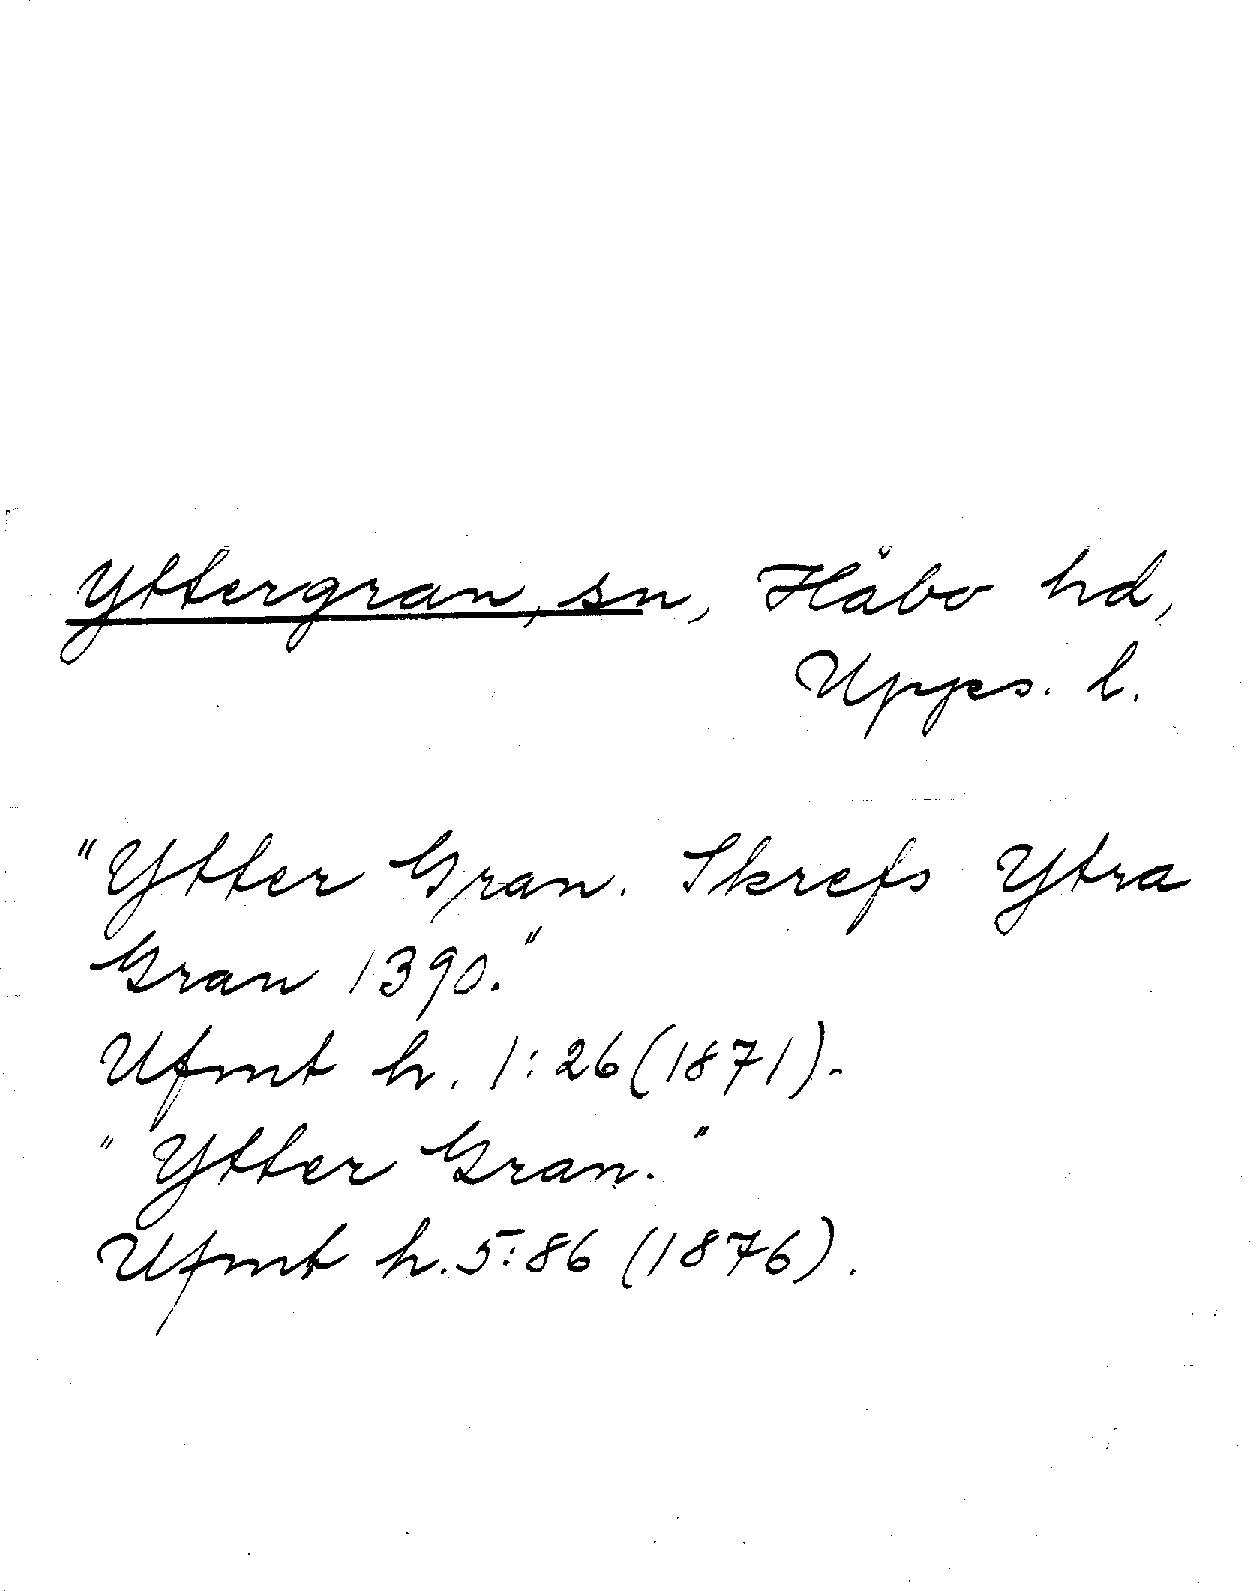 Yttergran, sn, Håbo hd,
Upps. l.
"Ytter Gran. Skrefs Ytra
Gran 1390."
Ufmt h. 1:26 (1871).
"Ytter Gran."
Ufmt h. 5:86 (1876).